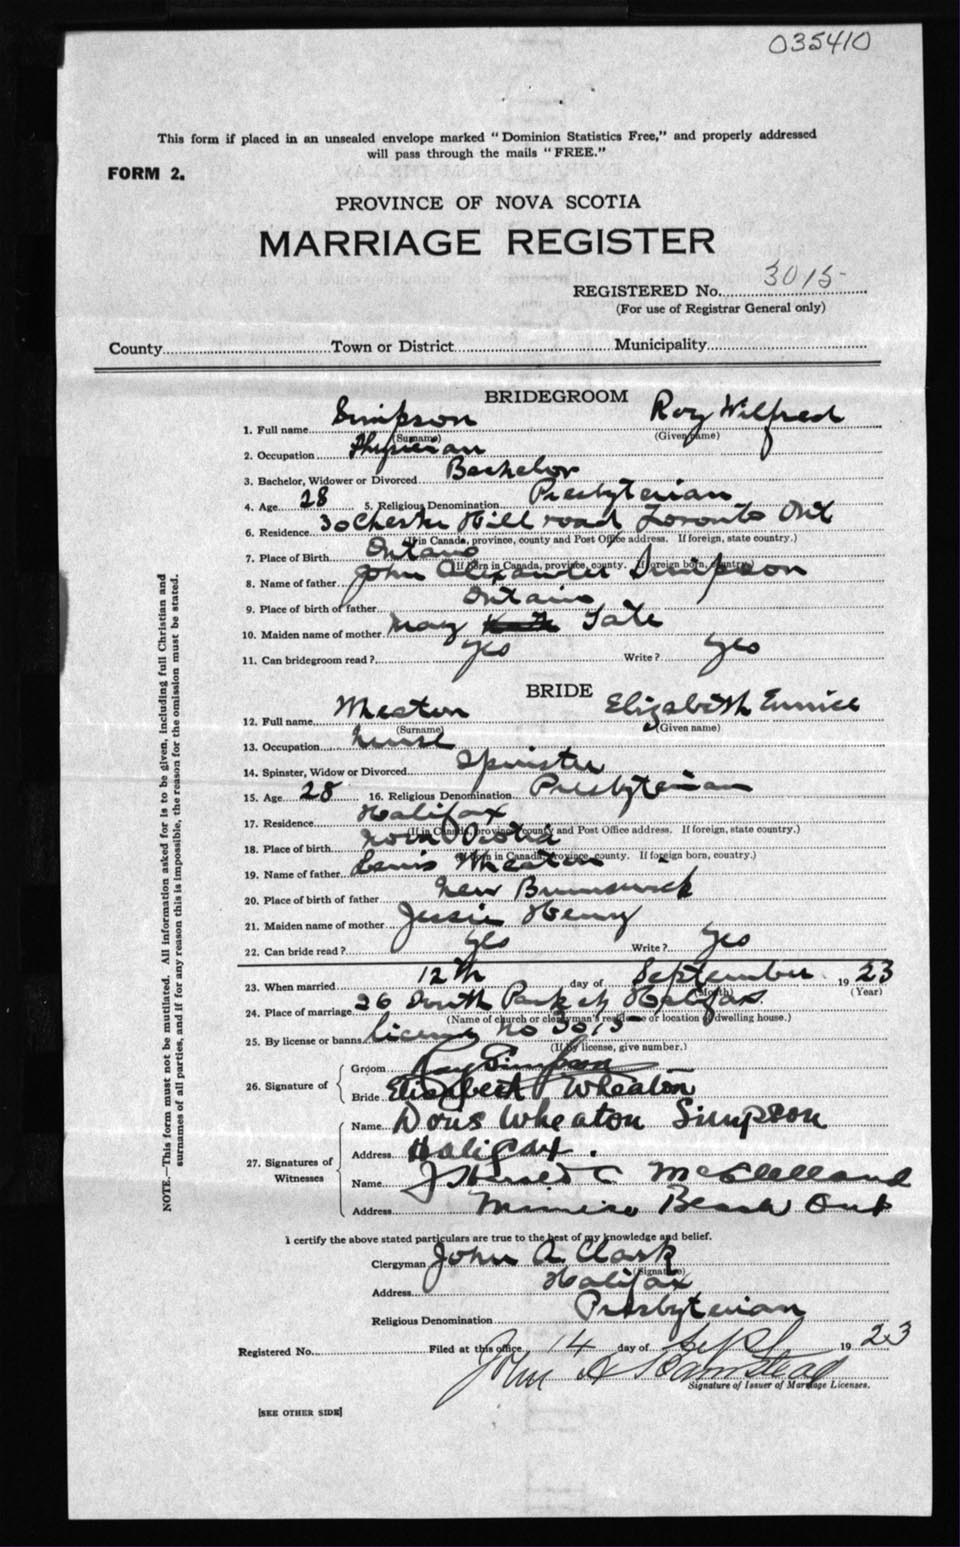 035410
This form if placed in an unsealed envelope marked "Dominion Statistics Free," and properly addressed
will pass through the mails "FREE."
FORM 2.
PROVINCE OF NOVA SCOTIA
MARRIAGE REGISTER
REGISTERED No. 3015
(For use of Registrar General only)
County Town or District Municipality
BRIDEGROOM
1. Full name Simpson Roy Wilfred
(Surname) (Given name)
2. Occupation Physician
3. Bachelor, Widower or Divorced Bachelor
4. Age 28 5. Religious Denomination Presbyterian
6. Residence 30 Chester Hill road Toronto Ont
(If in Canada, province, county and Post Office address. If foreign, state country.)
7. Place of Birth Ontario
(If born in Canada, province, county. If foreign born, country.)
8. Name of father John Alexander Simpson
9. Place of birth of father Ontario
10. Maiden name of mother May Tate
11. Can bridegroom read? yes Write? yes
BRIDE
12. Full name Wheaton Elizabeth Eunice
(Surname) (Given name)
13. Occupation Nurse
14. Spinster, Widow or Divorced Spinster
15. Age 28 16. Religious Denomination Presbyterian
17. Residence Halifax
(If in Canada, province, county and Post Office address. If foreign, state country.)
18. Place of birth Nova Scotia
(If born in Canada, province, county. If foreign born, country.)
19. Name of father Lewis Wheaton
20. Place of birth of father New Brunswick
21. Maiden name of mother Jessie Henry
22. Can bride read? yes Write? yes
23. When married 12th day of September 1923
(Month) (Year)
24. Place of marriage 26 South Park St Halifax
(Name of church or clergyman's residence or location of dwelling house.)
25. By license or banns license no 3015
(If by license, give number.)
26. Signature of Groom Roy Simpson
Bride Elizabeth Wheaton
27. Signatures of Witnesses
Name Doris Wheaton Simpson
Address Halifax.
Name McClelland
Address Mimico Beach Ont
I certify the above stated particulars are true to the best of my knowledge and belief.
Clergyman John A. Clark
(Signature)
Address Halifax
Religious Denomination Presbyterian
Registered No. Filed at this office, 14 day of Sept 1923
John A Barnstead
Signature of Issuer of Marriage Licenses.
[SEE OTHER SIDE]
NOTE.—This form must not be mutilated. All information asked for is to be given, including full Christian and
surnames of all parties, and if for any reason this is impossible, the reason for the omission must be stated.